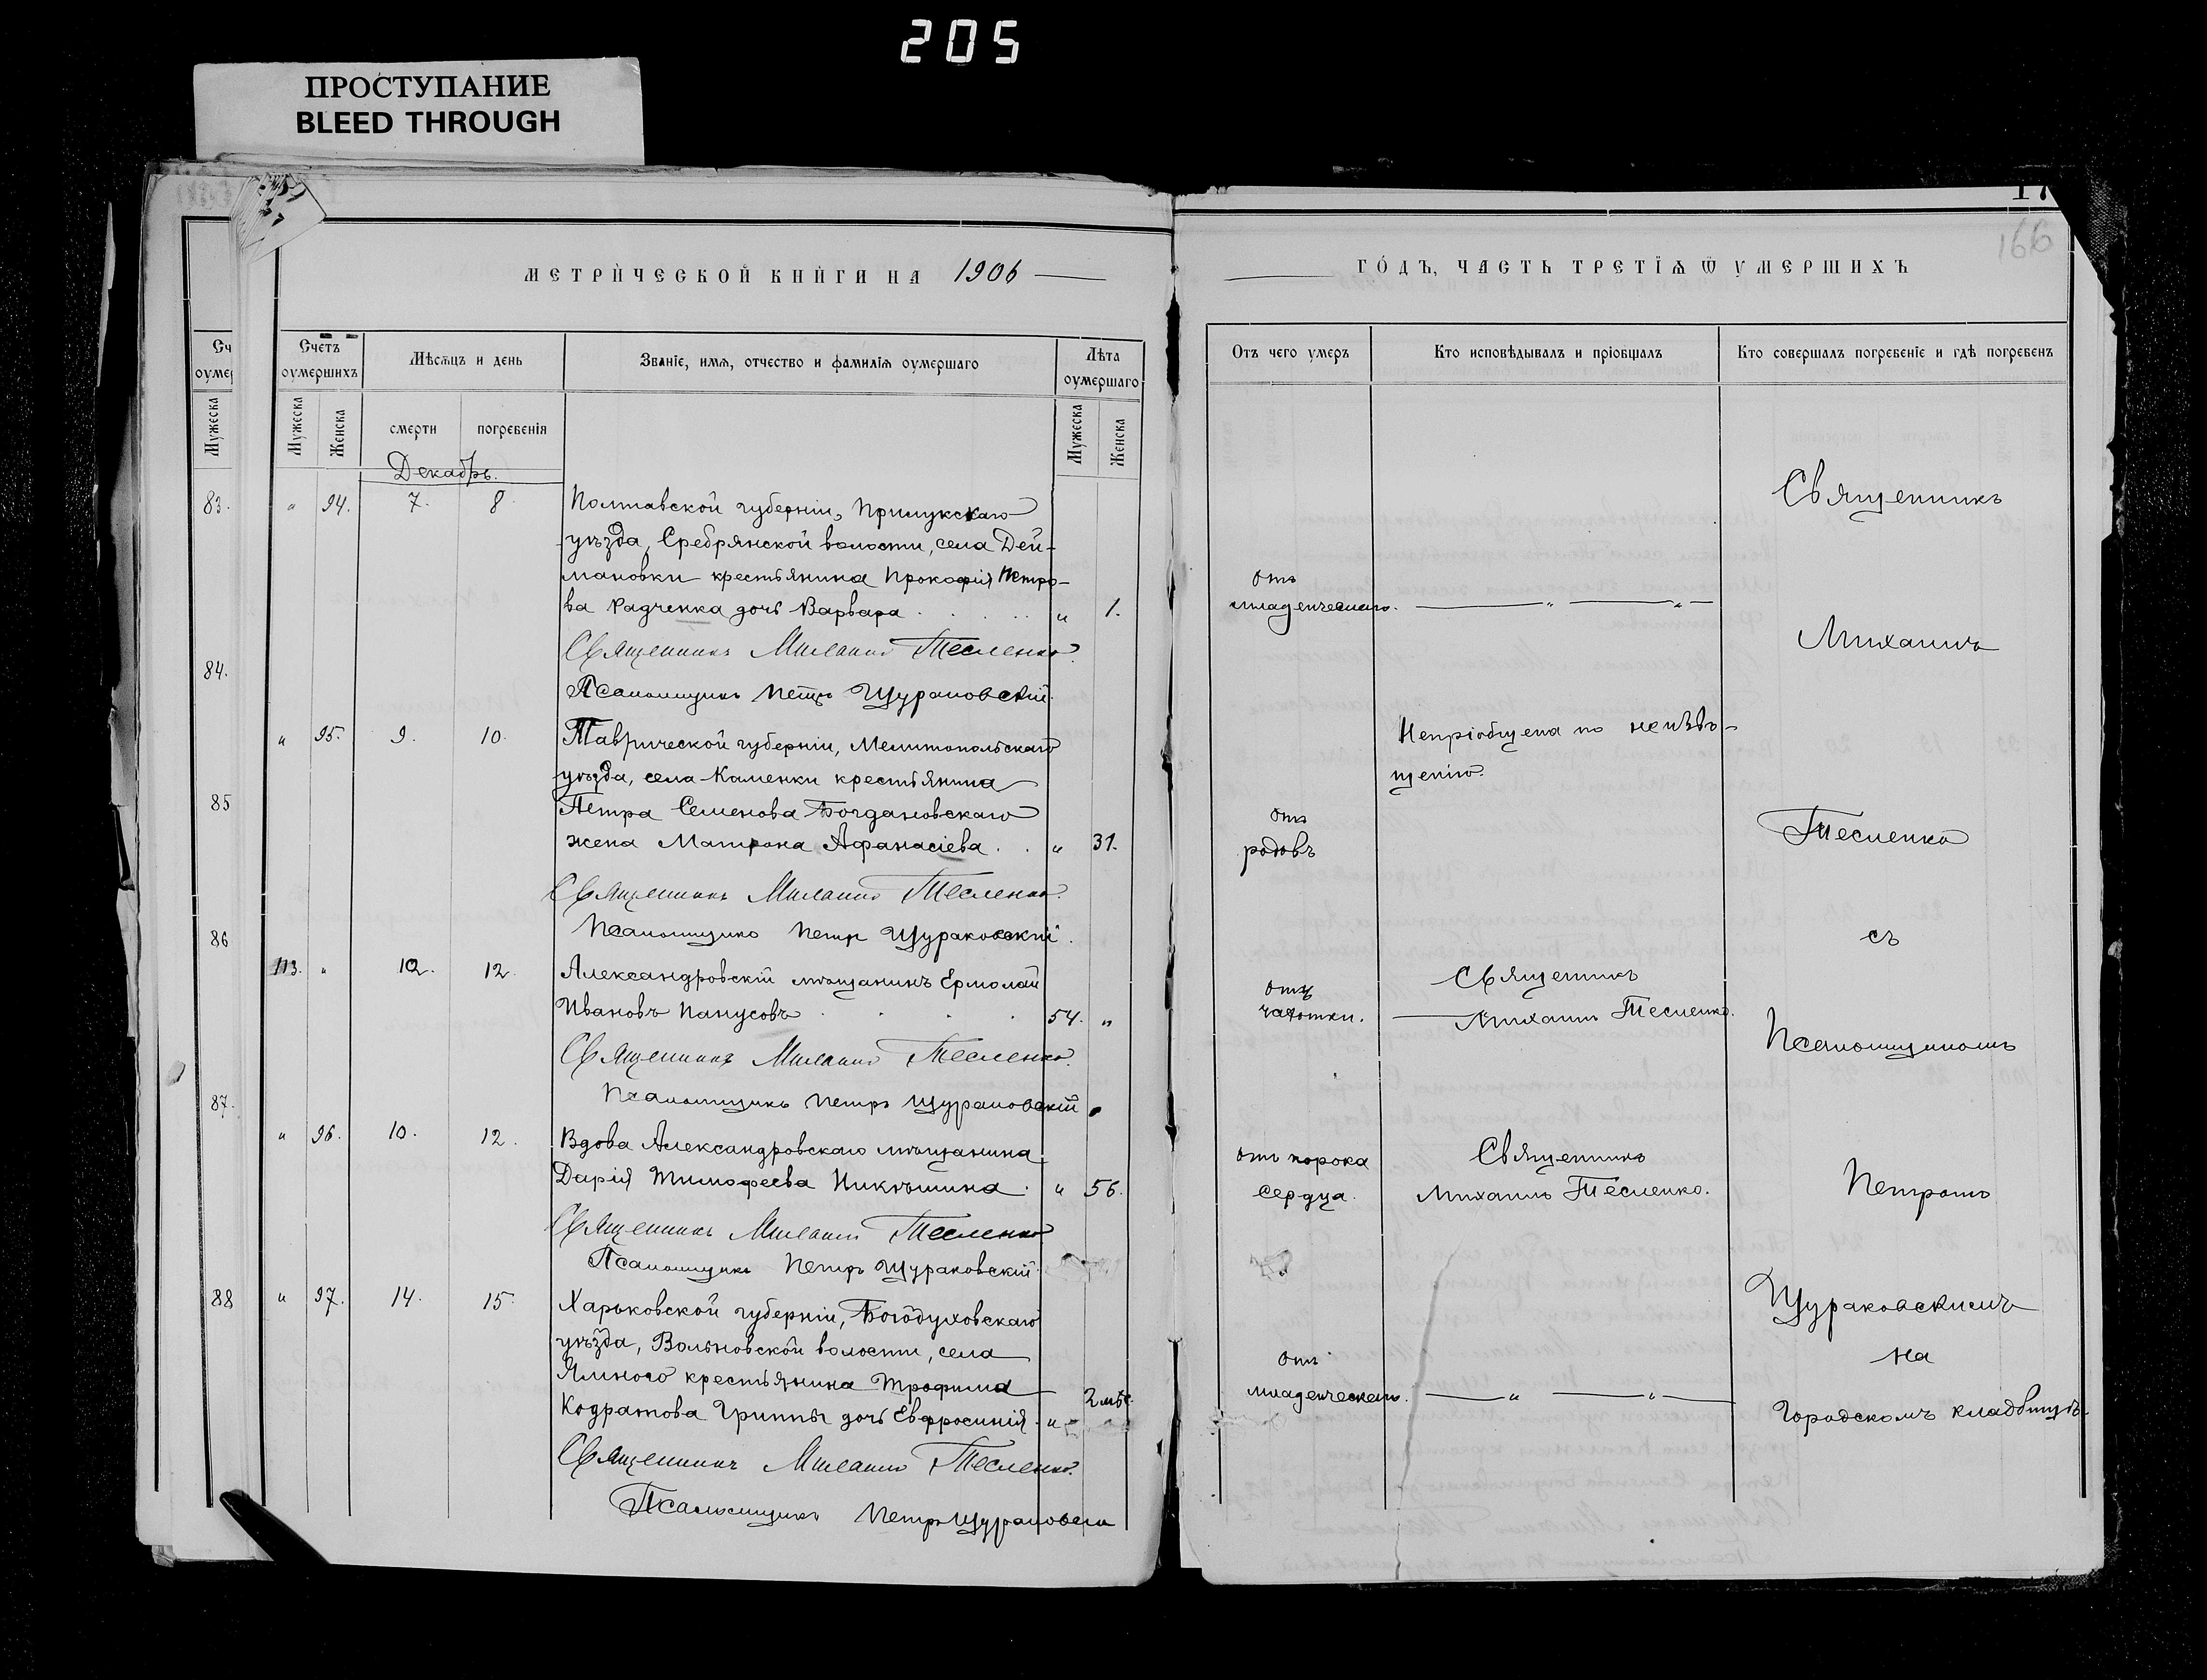 205
ПРОСТУПАНИЕ
BLEED THROUGH
166
МЕТРИ́ЧЕСКОЙ КНИ́ГИ НА 1906
ГО́ДЪ, ЧАСТЬ ТРЕТІѦ Ѿ УМЕРШИХЪ
Счетъ оумершихъ
Мѣсѧцъ и день
Званїе, имѧ, отчество и фамилїѧ оумершаго
Лѣта оумершаго
Отъ чего умеръ
Кто исповѣдывалъ и прїобщалъ
Кто совершалъ погребенїе и гдѣ погребенъ
Мужеска
Мужеска
Женска
смерти
погребенїя
Мужеска
Женска
Декабрь.
83.
" 94. 7. 8 Полтавской губерніи, Прилукскаго
уѣзда, Сребрянской волости, села Дей-
мановки крестьянина Прокофія Петро-
ва Радченка дочь Варвара " 1.
Священникъ Михаилъ Тесленко.
Псаломщикъ Петръ Щураковскій.
84.
" 95. 9. 10. Таврической губерніи, Мелитопольскаго
уѣзда, села Каменки крестьянина
Петра Семенова Богдановскаго
жена Матрона Афанасіева " 31.
85
Священникъ Михаилъ Тесленко.
Псаломщикъ Петръ Щураковскій.
86
113. " 10. 12. Александровскій мѣщанинъ Ермолай
Ивановъ Панусовъ 54. "
Священникъ Михаилъ Тесленко.
Псаломщикъ Петръ Щураковскій
87.
" 96. 10. 12. Вдова Александровскаго мѣщанина
Дарія Тимофеева Никѣшина " 56.
Священникъ Михаилъ Тесленко
Псаломщикъ Петръ Щураковскій.
88
" 97. 14. 15. Харьковской губерніи, Богодуховскаго
уѣзда, Вольновской волости, села
Ямного крестьянина Трофима
Кодратова Гриппы дочь Евфросинія " 2 мѣс.
Священникъ Михаилъ Тесленко.
Псаломщикъ Петръ Щураковскій
отъ
младенческаго. " "
Непріобщена по неизвѣ-
щенію.
отъ
родовъ
отъ
чахотки.
Священникъ
Михаилъ Тесленко.
отъ порока
сердца.
Священникъ
Михаилъ Тесленко.
отъ
младенческаго. " "
Священникъ
Михаилъ
Тесленко
съ
Псаломщикомъ
Петромъ
Щураковскимъ
на
Городскомъ кладбищѣ.